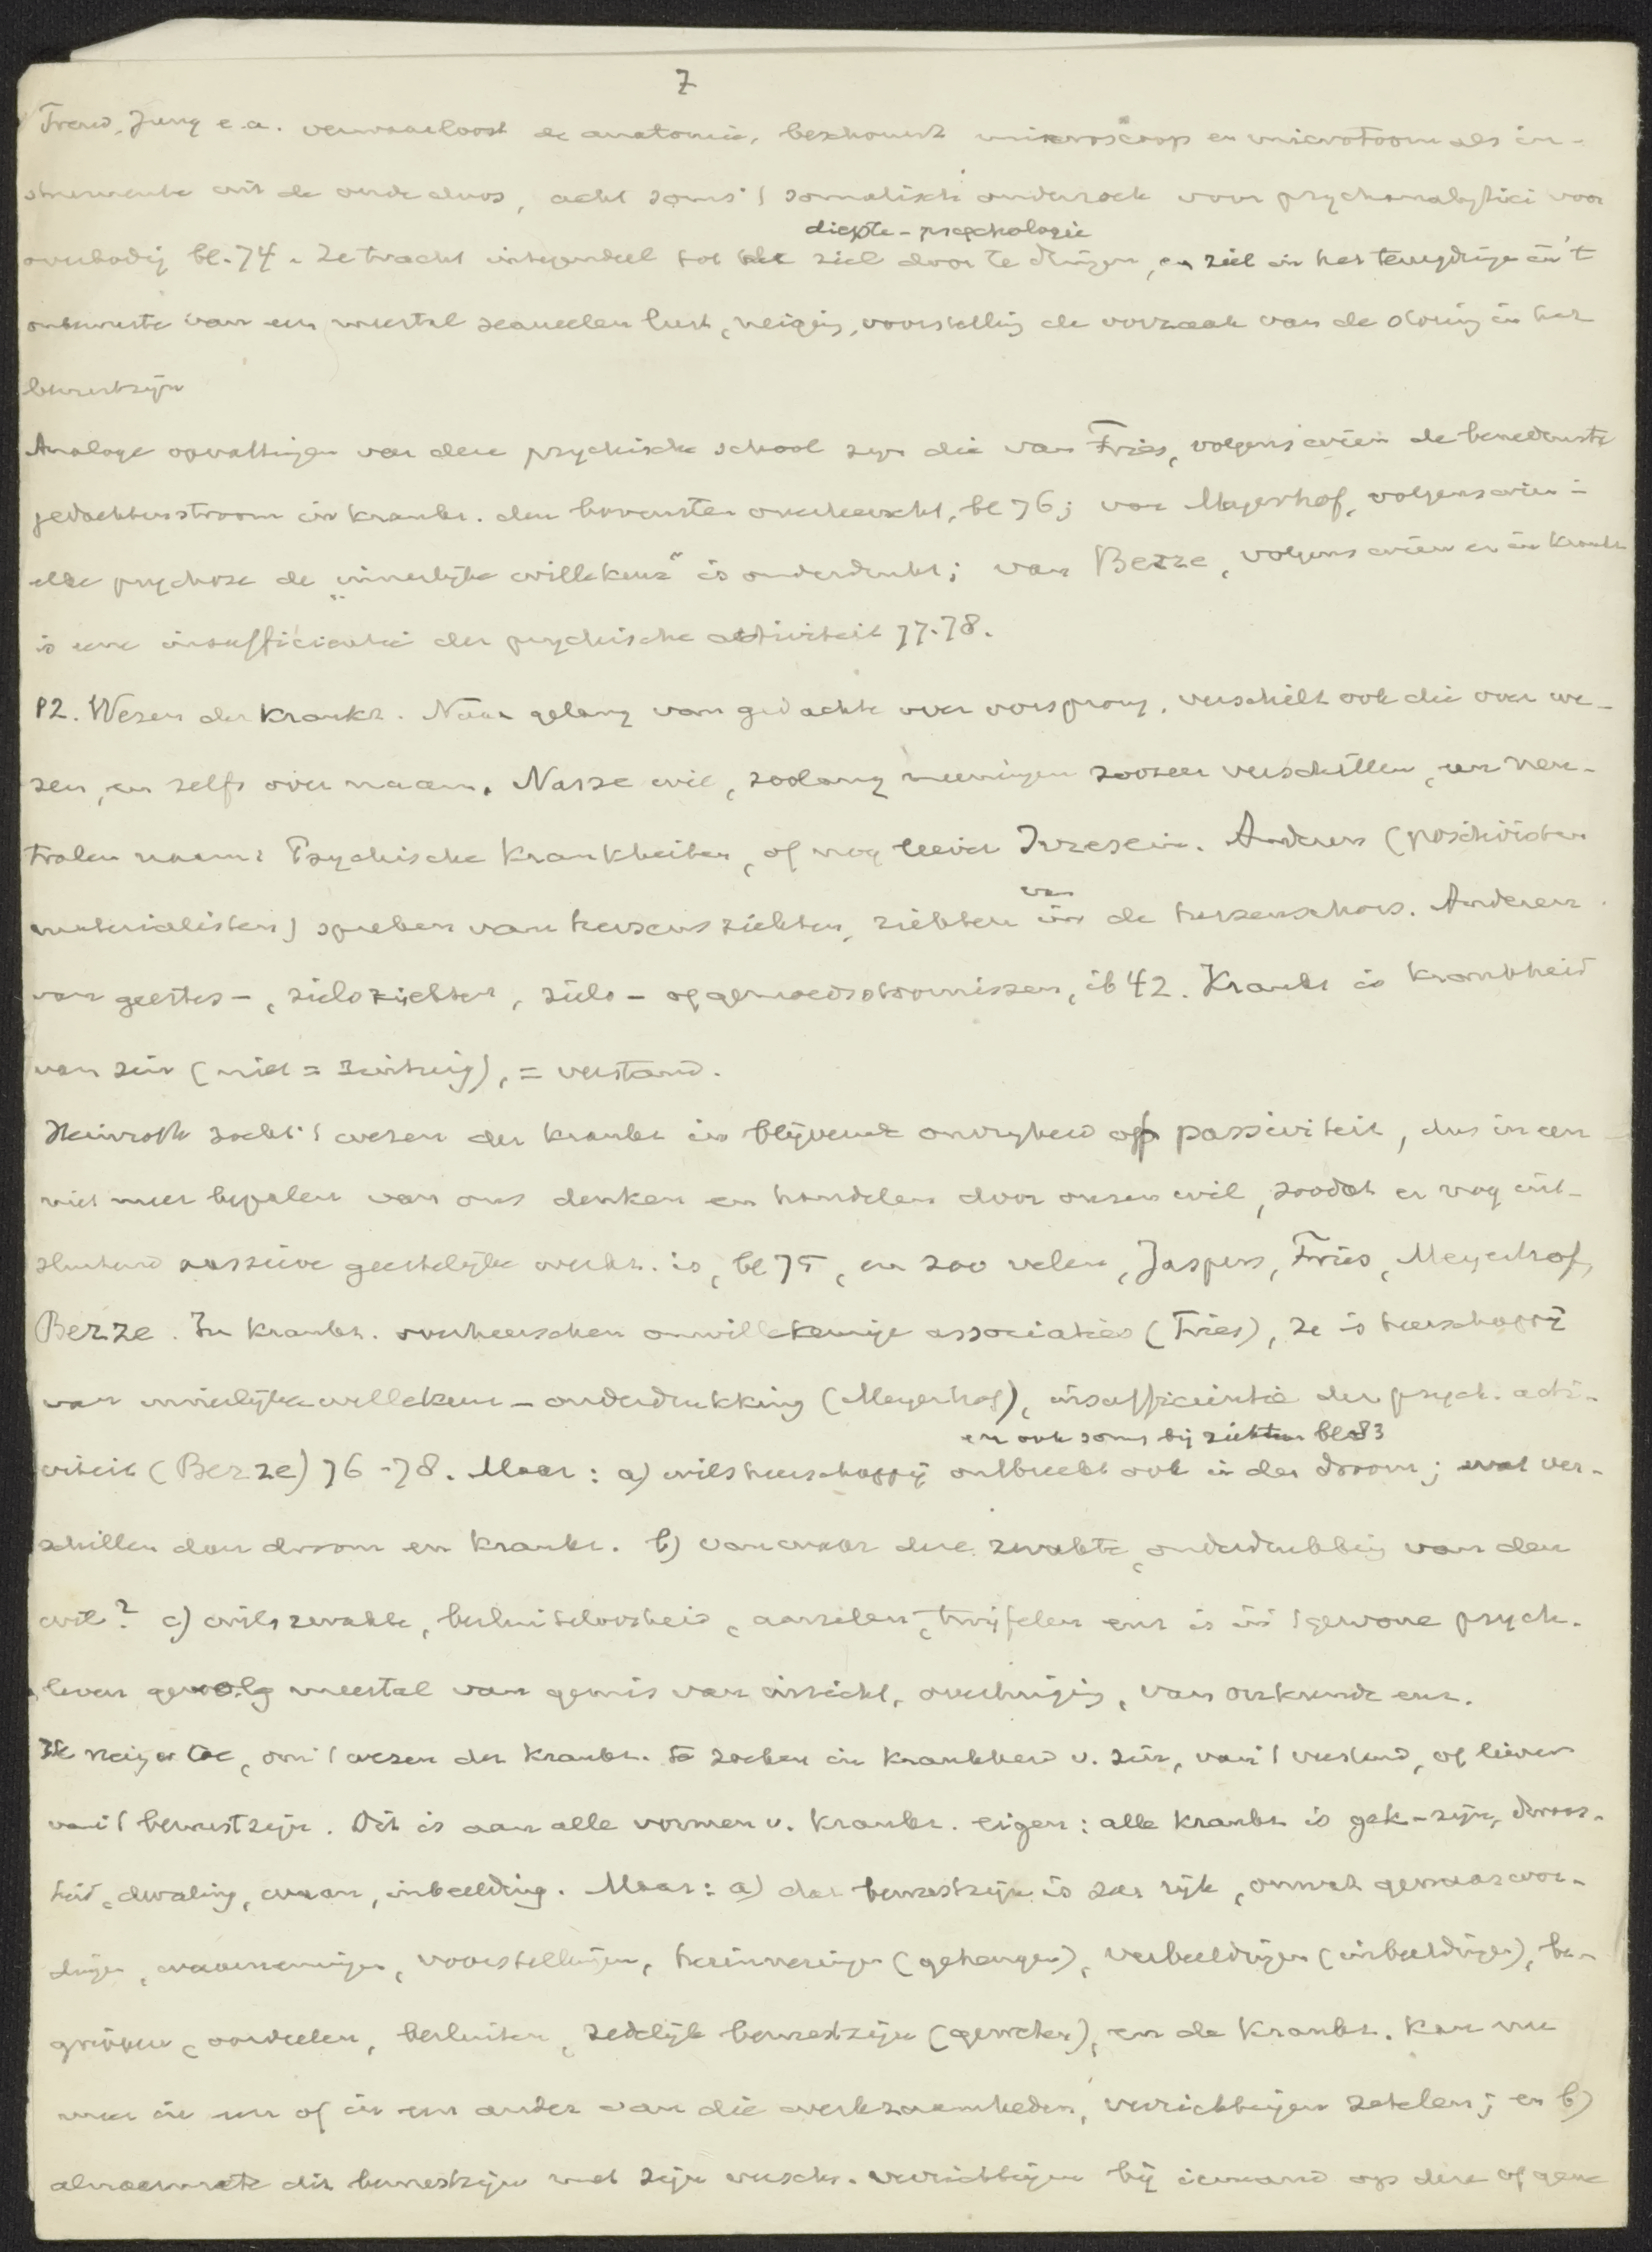 7
Freud, Jung e.a. verwaarloost de anatomie, beschouwt microscoop en microtoom als in-
strumente uit de oude doos, acht soms 't somatisch onderzoek voor psychoanalytici voor
diepte-psychologie
overbodig bl. 74. Ze tracht integendeel tot de ziel door te dringen, en ziet in het terugdringen in 't
onbewuste van een meestal sexueelen lust, neiging, voorstelling de oorzaak van de storing in het
bewustzijn
Analoge opvattingen van deze psychische school zijn die van Fries, volgens wien de benedenste
gedachtenstroom in krankz. den bovensten overheerscht, bl 76; van Meyerhof, volgens wien in
elke psychose de "innerlijke willekeur" is onderdrukt; van Berze, volgens wien er in krankz
is eene insufficientie der psychische activiteit 77-78.
§2. Wezen der krankz. Naar gelang van gedachte over oorsprong, verschilt ook die over we-
zen, en zelfs over naam. Nasse wil, zoolang meeningen zoozeer verschillen, een neu-
tralen naam: Psychische Krankheiten, of nog liever Irresein. Anderen (positivisten
materialisten) spreken van hersensziekten, ziekten
van
in de hersenschors. Anderen
van geestes-, zielsziekten, ziels- of gemoedsstoornissen, ib 42. Krankz is krankheid
van zin (niet = zintuig), = verstand.
Heinroth zocht 't wezen der krankz in blijvende onvrijheid of passiviteit, dus in een
niet meer bepalen van ons denken en handelen door onzen wil, zoodat er nog uit-
sluitend passieve geestelijke werkz. is, bl 75, en zoo velen, Jaspers, Fries, Meyerhof,
Berze. In krankz. overheerschen onwillekeurige associaties (Fries), ze is heerschappij
van innerlijke willekeur-onderdrukking (Meyerhof), insufficientie der psych. acti-
en ook soms bij ziekten bl 83
viteit (Berze) 76-78. Maar: a) wilsheerschappij ontbreekt ook in den droom; wat ver-
schillen dan droom en krankz. b) vanwaar deze zwakte, onderdrukking van den
wil? c) wilszwakte, besluiteloosheid, aarzelen, twijfelen enz is in 't gewone psych.
leven gevolg meestal van gemis van inzicht, overtuiging, van onkunde enz.
Ik neig er toe, om 't wezen der krankz. te zoeken in krankheid v. zin, van 't verstand, of liever
van 't bewustzijn. Dit is aan alle vormen v. krankz. eigen: alle krankz is gek-zijn, dwaas-
heid, dwaling, waan, inbeelding. Maar: a) dat bewustzijn is zeer rijk, omvat gewaarwor-
dingen, waarnemingen, voorstellingen, herinneringen (geheugen), verbeeldingen (inbeeldingen), be-
grippen, oordeelen, besluiten, zedelijk bewustzijn (geweten), en de krankz. kan nu
meer in een of in een ander van die werkzaamheden, verrichtingen zetelen; en b)
alnaarmate dit bewustzijn met zijn versch. verrichtingen bij iemand op deze of gene